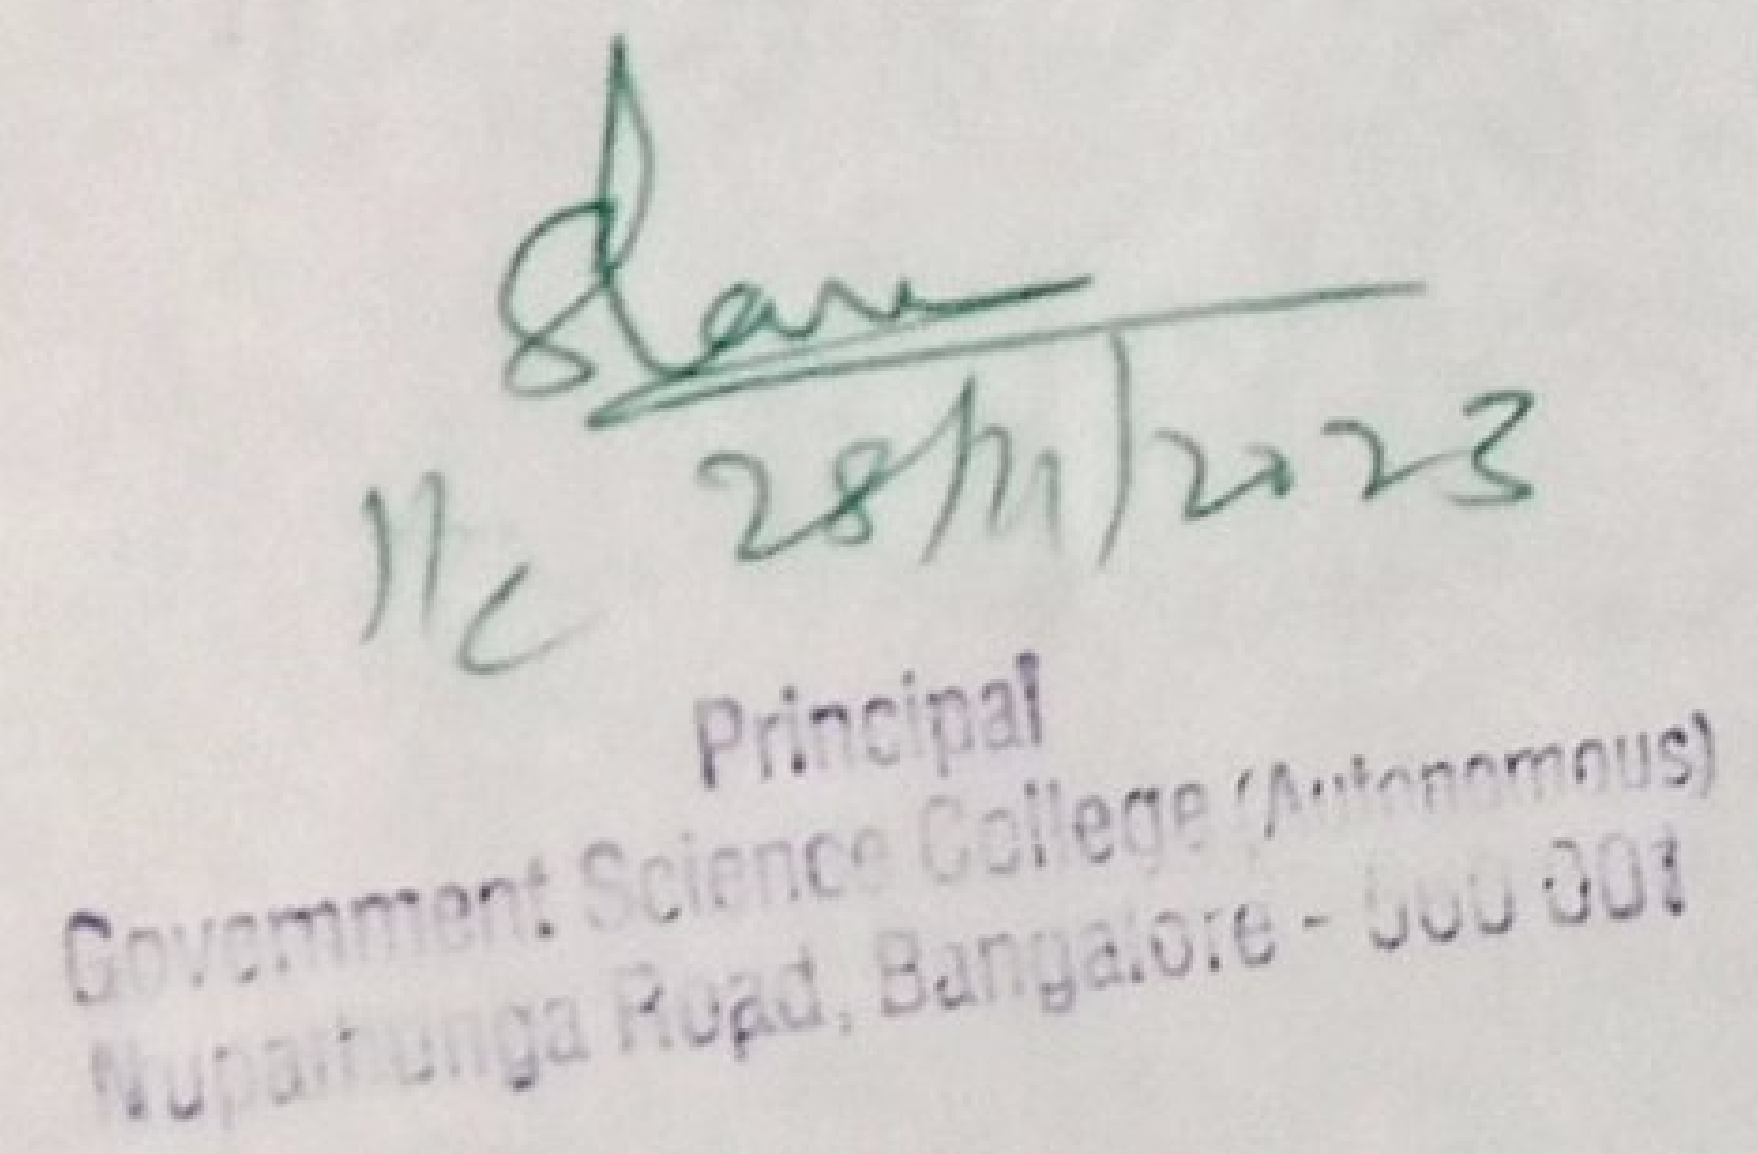 28/11/2023
Principal
Government Science College (Autonomous)
Nupathunga Road, Bangalore - 560 001